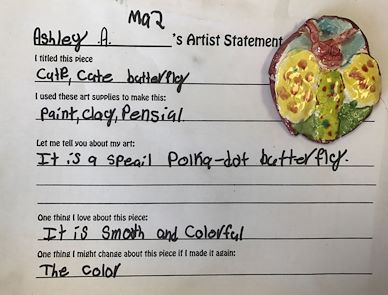 Ma2
Ashley A. 's Artist Statement
I titled this piece
Cute, Cate butterfloy
I used these art supplies to make this:
Paint, clay, Pensial
Let me tell you about my art:
It is a speail Polka-dot butterfloy.
One thing I love about this piece:
It is Smoth and Colorful
One thing I might change about this piece if I made it again:
The color